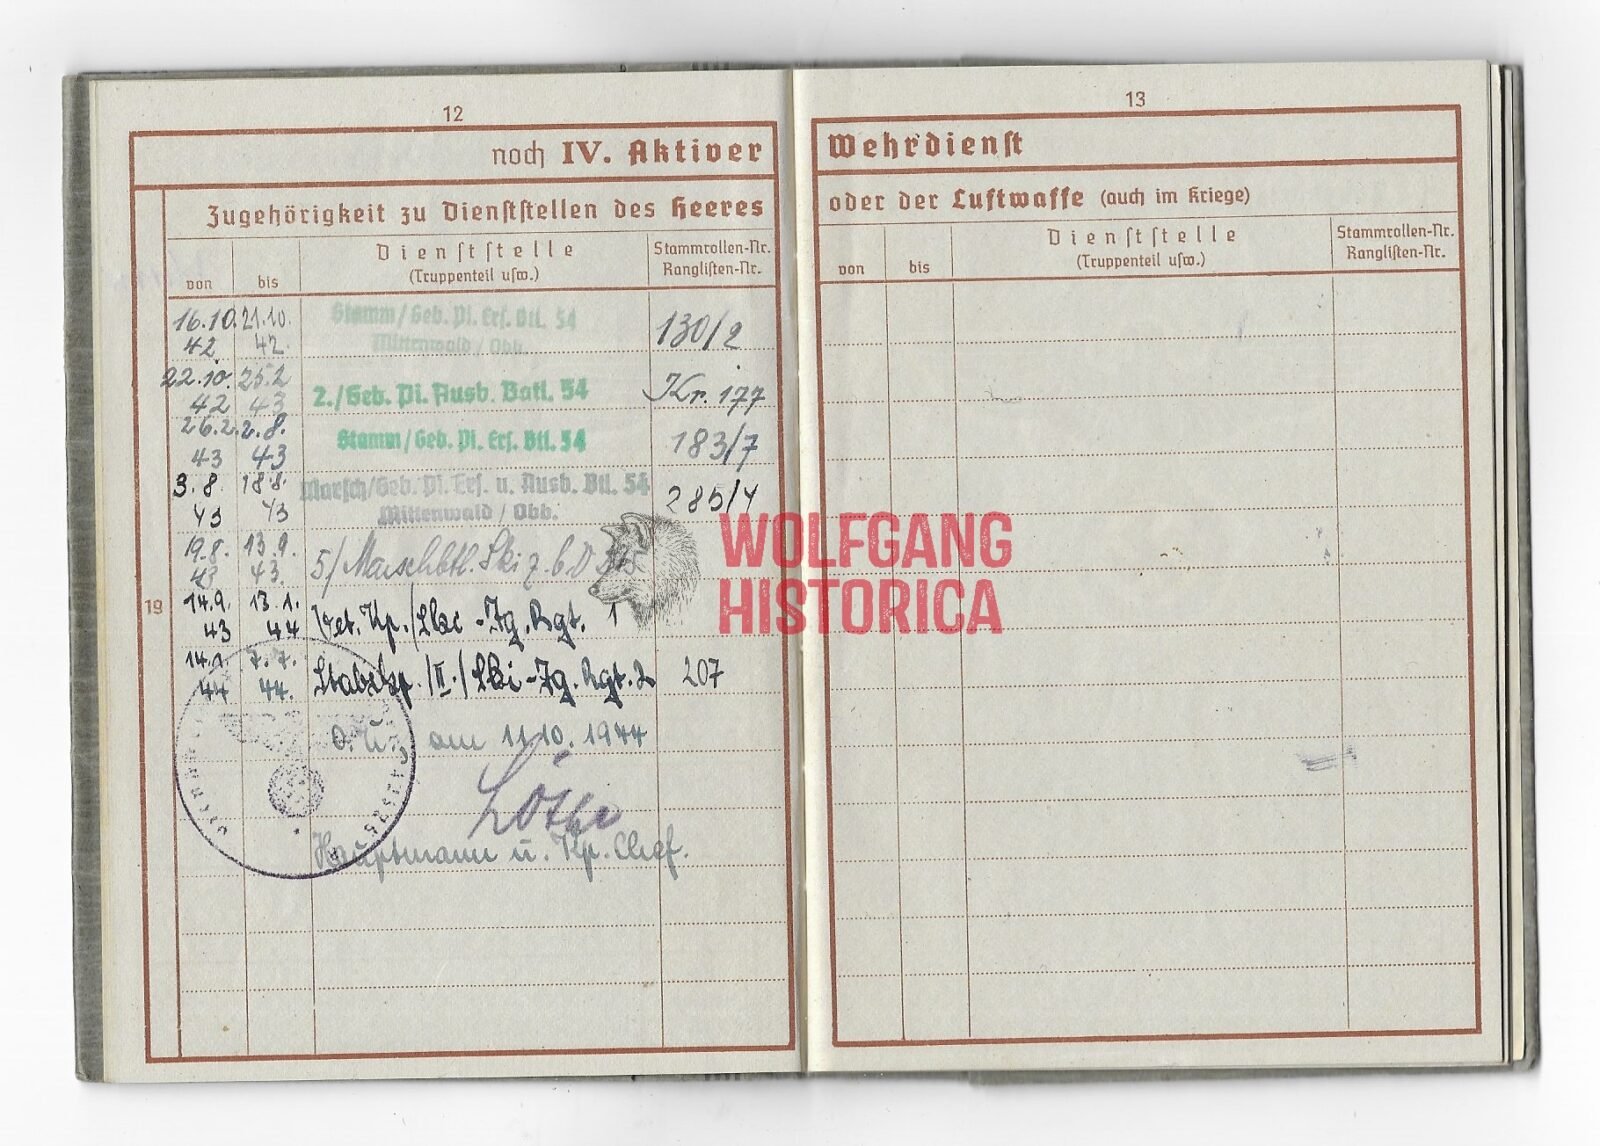 12
noch IV. Aktiver
Zugehörigkeit zu Dienststellen des Heeres
von bis Dienststelle (Truppenteil usw.) Stammrollen-Nr. Ranglisten-Nr.
16.10. 42 21.10. 42. Stamm/Geb. Pi. Ers. Btl. 54 130/2
Mittenwald/Obb.
22.10. 42 25.2 43 2./Geb. Pi. Ausb. Batl. 54 Kr. 177
26.2. 43 2.8. 43 Stamm/Geb. Pi. Ers. Btl. 54 183/7
3.8. 43 18.8. 43 Marsch/Geb. Pi. Ers. u. Ausb. Btl. 54 285/4
Mittenwald/Obb.
19.8. 43 13.9. 43. 5/Marschbtl. Ski z.b.V.
14.9. 43 13.1. 44 Kp./Ski-Jg. Rgt. 1
19
14.1. 44 7.7. 44. Stabskp./II./Ski-Jg. Rgt. 2 207
O.U. am 11.10.1944
Hauptmann u. Kp. Chef.
13
Wehrdienst
oder der Luftwaffe (auch im Kriege)
von bis Dienststelle (Truppenteil usw.) Stammrollen-Nr. Ranglisten-Nr.
WOLFGANG
HISTORICA